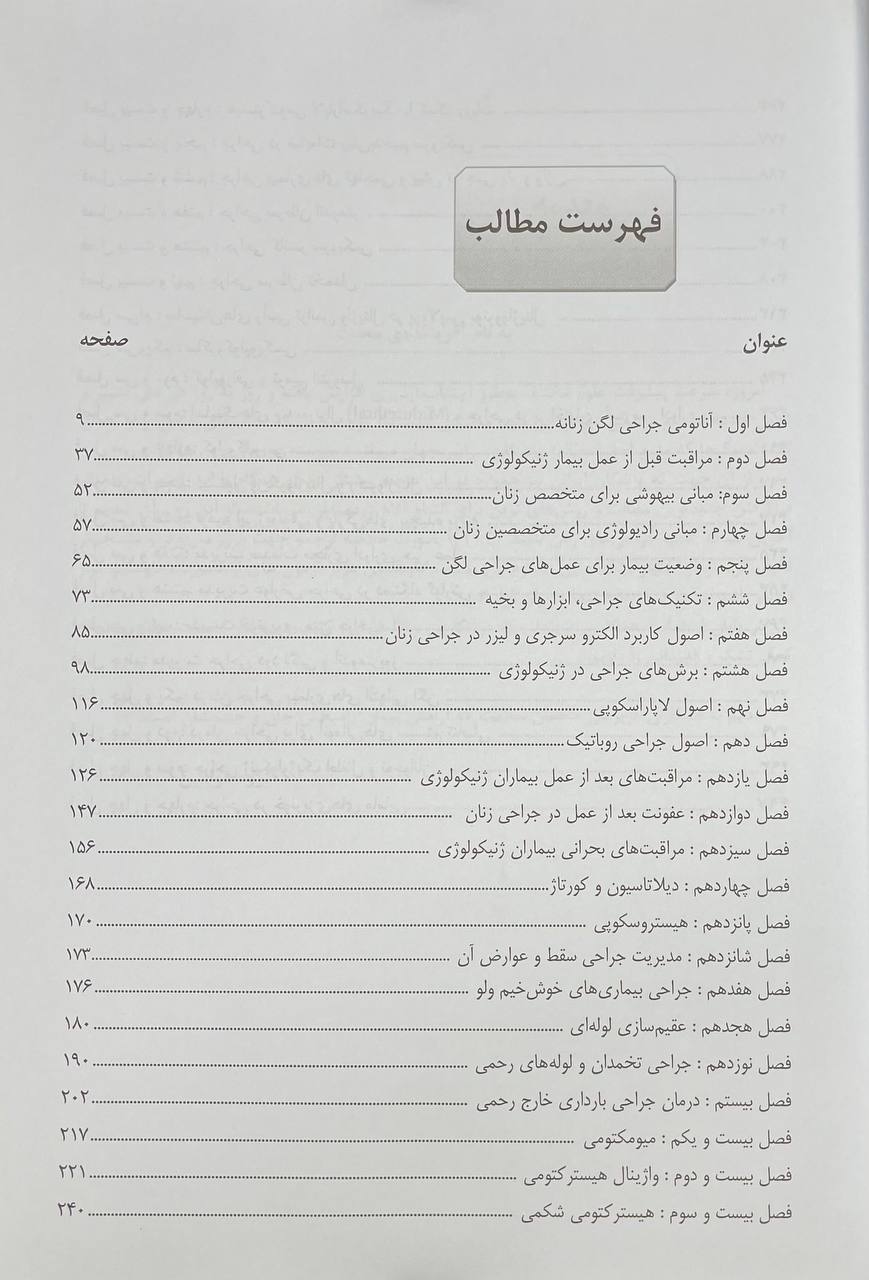 فهرست مطالب
عنوان صفحه
فصل اول : آناتومی جراحی لگن زنانه..........۹
فصل دوم : مراقبت قبل از عمل بیمار ژنیکولوژی ..........۳۷
فصل سوم: مبانی بیهوشی برای متخصص زنان..........۵۲
فصل چهارم : مبانی رادیولوژی برای متخصصین زنان ..........۵۷
فصل پنجم : وضعیت بیمار برای عمل‌های جراحی لگن ..........۶۵
فصل ششم : تکنیک‌های جراحی، ابزارها و بخیه ..........۷۳
فصل هفتم : اصول کاربرد الکترو سرجری و لیزر در جراحی زنان..........۸۵
فصل هشتم : برش‌های جراحی در ژنیکولوژی ..........۹۸
فصل نهم : اصول لاپاراسکوپی..........۱۱۶
فصل دهم : اصول جراحی روباتیک..........۱۲۰
فصل یازدهم : مراقبت‌های بعد از عمل بیماران ژنیکولوژی ..........۱۲۶
فصل دوازدهم : عفونت بعد از عمل در جراحی زنان ..........۱۴۷
فصل سیزدهم : مراقبت‌های بحرانی بیماران ژنیکولوژی ..........۱۵۶
فصل چهاردهم : دیلاتاسیون و کورتاژ..........۱۶۸
فصل پانزدهم : هیستروسکوپی ..........۱۷۰
فصل شانزدهم : مدیریت جراحی سقط و عوارض آن ..........۱۷۳
فصل هفدهم : جراحی بیماری‌های خوش‌خیم ولو ..........۱۷۶
فصل هجدهم : عقیم‌سازی لوله‌ای ..........۱۸۰
فصل نوزدهم : جراحی تخمدان و لوله‌های رحمی ..........۱۹۰
فصل بیستم : درمان جراحی بارداری خارج رحمی ..........۲۰۲
فصل بیست و یکم : میومکتومی ..........۲۱۷
فصل بیست و دوم : واژینال هیسترکتومی ..........۲۲۱
فصل بیست و سوم : هیسترکتومی شکمی ..........۲۴۰